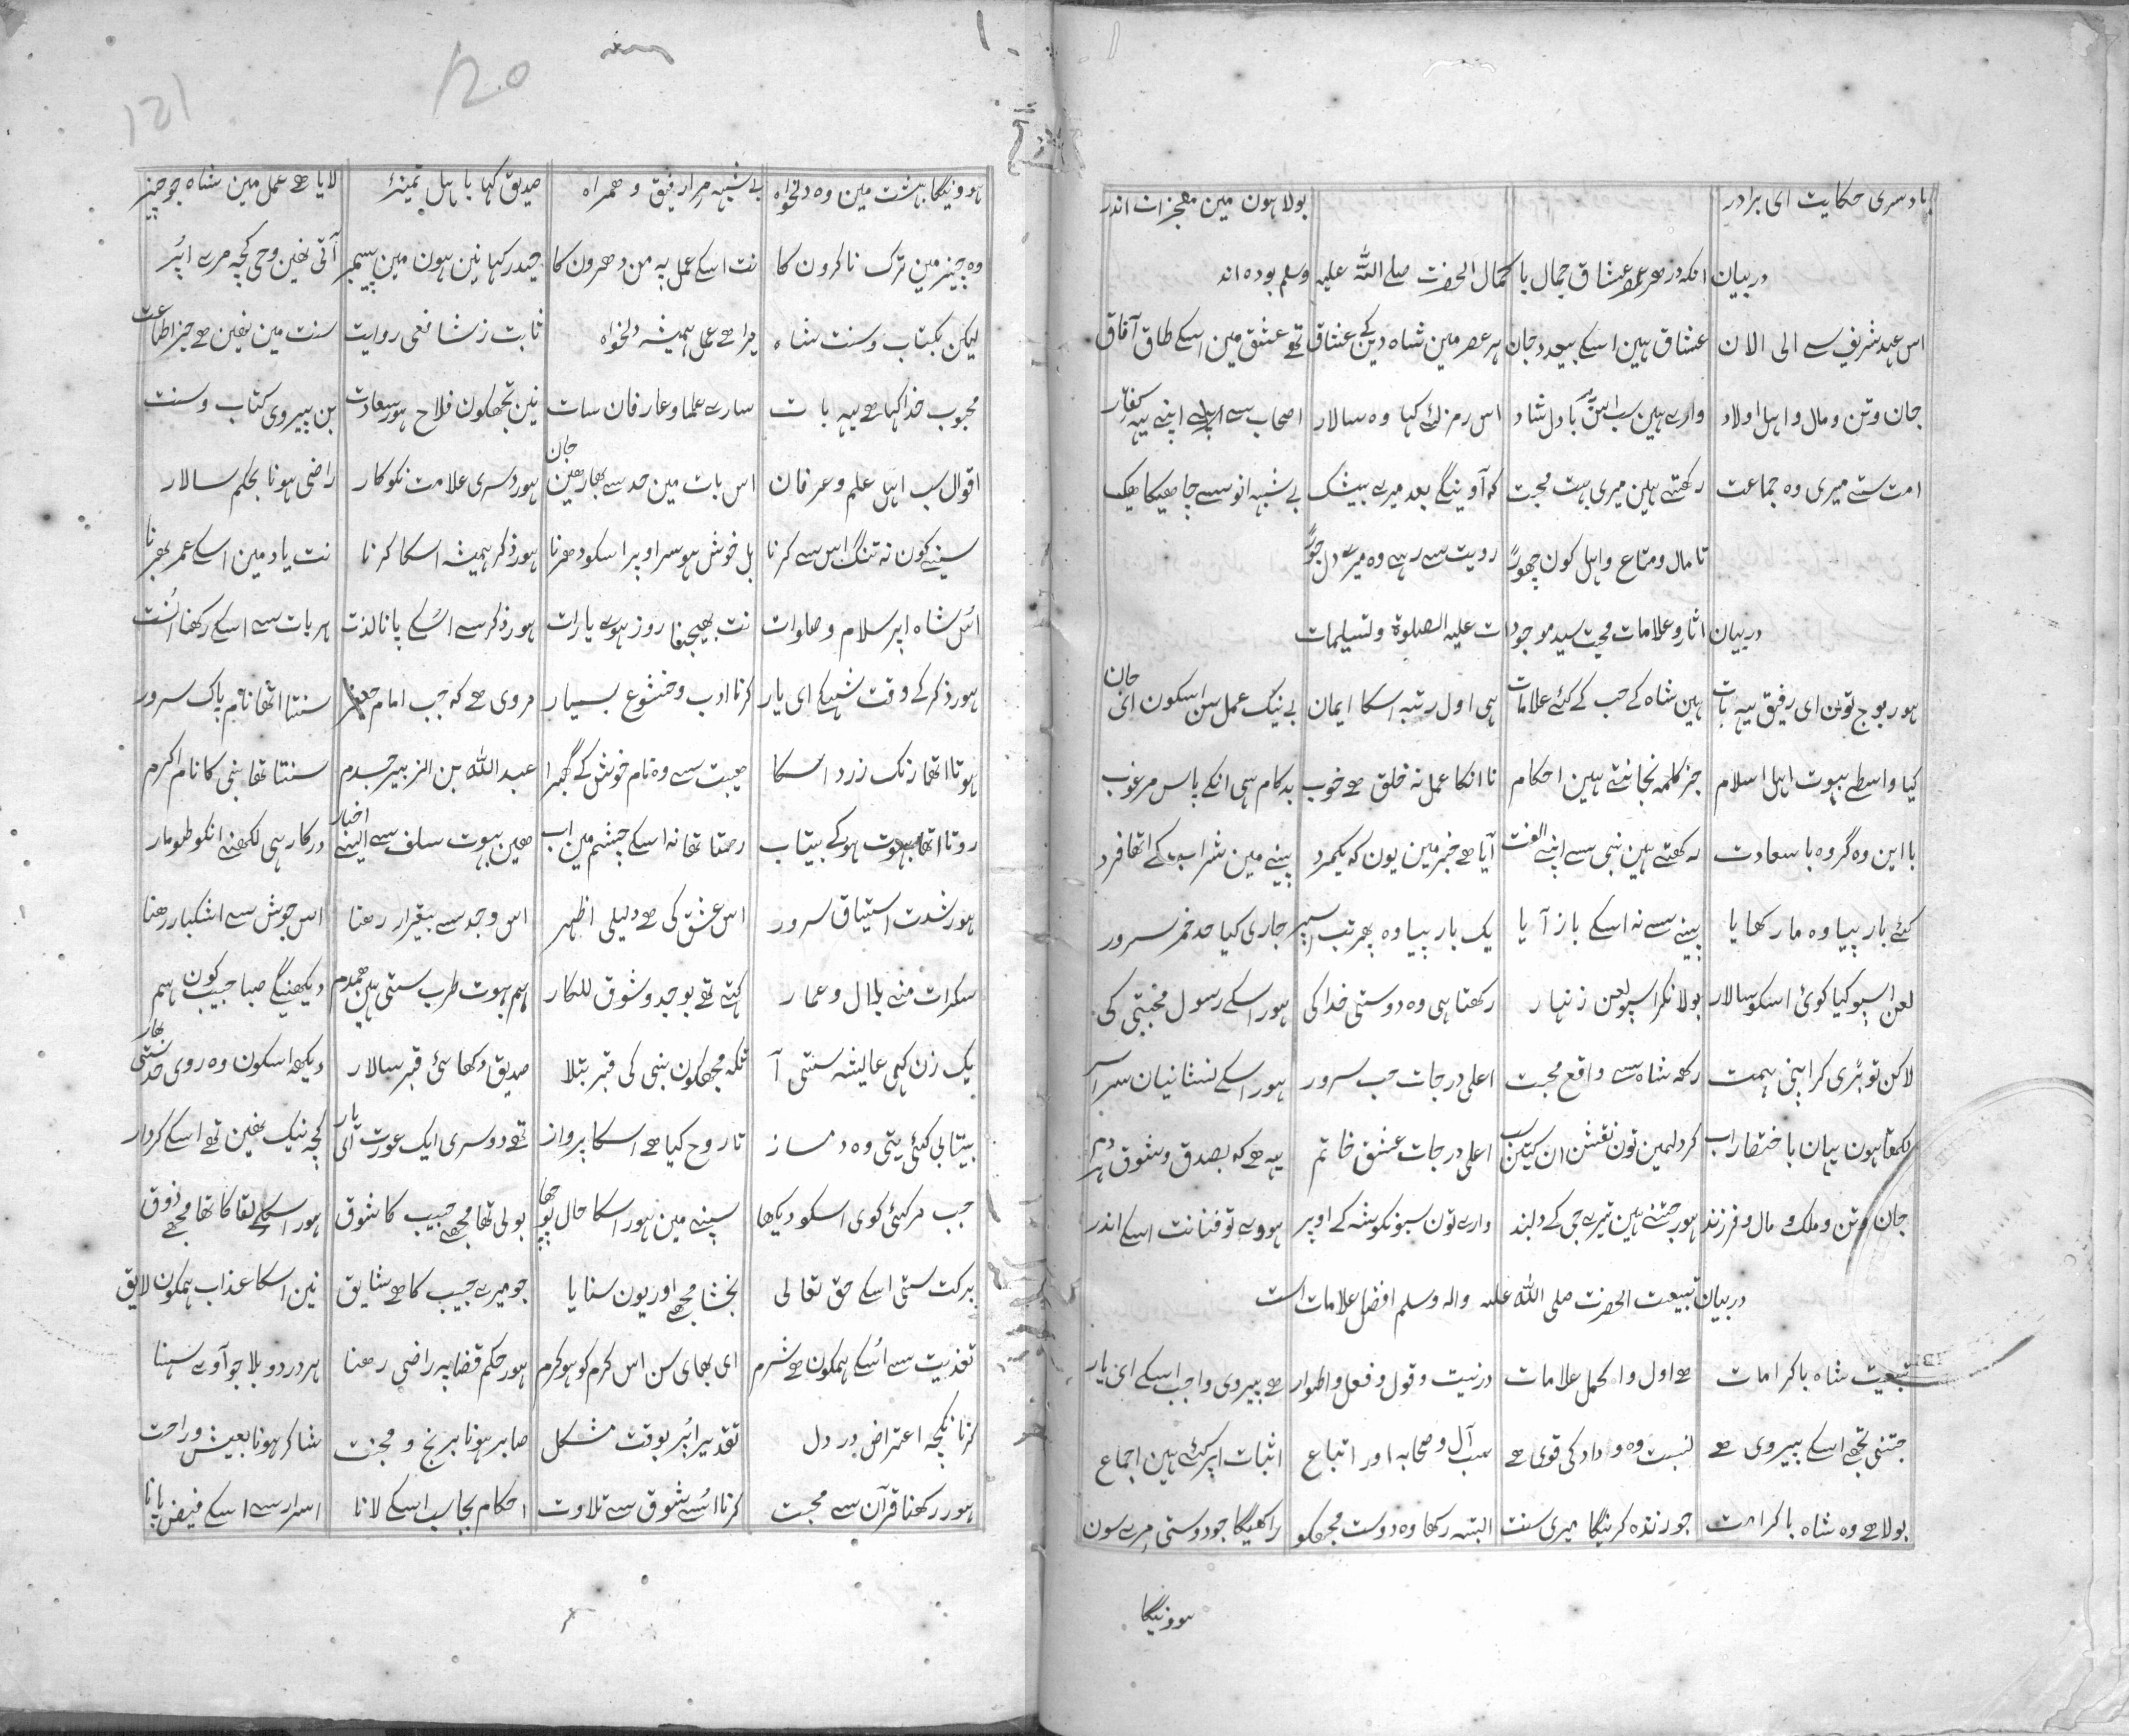 یا دسری حکایت ای برادر بولا ہون مین معجزات اندر
دربیان انکہ در هر عصر عشاق جمال با کمال الحضرت صلے اللہ علیہ وسلم بودہ اند
اس عہد شریف سے الی الان عشاق ہین اسکے بیعد دجان ہر عصر مین شاہ دین کے عشاق تھے عشق مین اسکے طاق آفاق
جان و تن و مال و اہل اولاد وارے ہین سب اس پہ بادل شاد اس رمز لئے کہا وہ سالار اصحاب سے اپنے یہہ گفتار
امت ستے میری وہ جماعت رکھتے ہین میری بہت محبت کہ آوینگے بعد میرے بیشک بے شبہہ انو سے چاھیکا ھیک
تا مال و متاع و اہل کون چھوڑ رویت سے رہے وہ میرے دل جوڑ
دربیان اثار و علامات محبت سید موجودات علیہ الصلوة و تسلیمات
ہور بوج تون ای رفیق یہہ بات ہین شاہ کے حب کے کئے علامات ہی اول رتبہ اسکا ایمان بے نیک عمل سن اسکون ای جان
کیا واسطے بہوت اہل اسلام جز کلمہ نجانتے ہین احکام نا انکا عمل نہ خلق ھے خوب بد کام ہی انکے پاس مرغوب
با این وہ گروہ با سعادت رکھتے ہین نبی سے اپنے الفت آیا ھے خبر مین یون کہ یکمرد پینے مین شراب کے اتھا فرد
کئے بار پیا وہ مار کھایا پینے سے نہ اسکے باز آیا یک بار پیا وہ پھر تب اسپر جاری کیا حد خمر سرور
لعن اسپو کیا کوئ اسکو سالار بولا نکر اسپو لعن زنہار رکھتا ہی وہ دوستی خدا کی ہور اسکے رسول مجتبی کی
لاکن تو بڑی کر اپنی ہمت رکھہ شاہ سے واقع محبت اعلی درجات حب سرور ہور اسکے نشانیان سراسر
لکھتا ہون بیان باختصار اب کر دلمین تون نقش ان کیتن سب اعلی درجات عشق خاتم یہہ ھے کہ بصدق و شوق ہر دم
جان و تن و ملک و مال و فرزند ہور جتنے ہین تیرے جی کے دلبند وارے تون سبو نکو شہ کے اوپر ہووے تو فنانت اسکے اندر
دربیان تبیعت الحضرت صلی اللہ علیہ والہ وسلم افضل علامات است
تبیعت شاہ با کرامات ھے اول و اکمل علامات در نیت و قول و فعل و اطوار ھے پیروی واجب اسکے ای یار
جتنی تجھے اسکے پیروی ھے نسبت وہ وداد کی قوی ھے سب آل و صحابہ اور اتباع اثبات اپر کئے ہین اجماع
بولا ھے وہ شاہ با کرامت جو زندہ کرینگا میری سنت البتہ رکھا وہ دوست مجھکو راکھیگا جو دوستی مرے سون
ہووینگا
120
121
ہووینگا بہشت مین وہ دلخواہ بے شبہہ مرا رفیق و همراه صدیق کہا باہل تمیز لایا ھے عمل مین شاہ جو چیز
وہ چیز مین ترک نا کرون کا نت اسکے عمل پہ من دھرون کا حیدر کہا نین ہون مین پیمبر آتی نھین وحی کچہ مرے اپر
لیکن بکتاب و سنت شاہ میرا ھے عمل ہمیشہ دلخواہ ثابت ز شافعی روایت سنت مین نھین ھے جز اطاعت
محبوب خدا کہا ھے یہہ بات سارے علما و عارفان سات نین تجھکون فلاح ہور سعادت بن پیروی کتاب و سنت
اقوال سب اہل علم و عرفان اس بات مین حد سے بھار ھین جان ہور دسری علامت نکو کار راضی ہونا بحکم سالار
سینے کون نہ تنگ اس سے کرنا بل خوش ہو سر اوپر اسکو دھرنا ہور ذکر ہمیشہ اسکا کرنا نت یاد مین اسکے عمر بھرنا
اس شاہ اپر سلام و صلوات نت بھیجنا روز ہوے یا رات ہور ذکر سے اسکے پانا لذت ہر بات سے اسکے رکھنا انست
ہور ذکر کے وقت شہکے ای یار کرنا ادب و خشوع بسیار مروی ھے کہ جب امام جعفر سنتا اتھا نام پاک سرور
ہوتا اتھا رنگ زرد اسکا ہیبت سے وہ نام خوش کے گھبرا عبد اللہ بن الزبیر جسدم سنتا تھا نبی کا نام اکرم
روتا اتھا بہوت ہوکے بیتاب رھتا تھا نہ اسکے چشم مین اب ھین بہوت سلف سے ایسے اخبار درکار ہی لکھنے انکو طومار
ہور شدت اشتیاق سرور اس عشق کی ھے دلیلی اظہر اس وجد سے بیقرار رھنا اس جوش سے اشکبار رھنا
سکرات منے بلال و عمار کہتے تھے بوجد و شوق للکار ہم بہوت طرب ستی ہین ہمدم دیکھینگے صبا حبیب کون ہم
یک زن کہی عایشہ ستی آ تکہ مجھکون نبی کی قبر بتلا صدیق دکھائی قبر سالار دیکھہ اسکون وہ روی حد ستی بھار
بیتابی کئی یتی وہ دمساز تا روح کیا ھے اسکا پرواز تھے دوسری ایک عورت ای یار کچہ نیک نھین تھے اسکے کردار
جب مر گئی کوی اسکو دیکھا سپنے مین ہور اسکا حال پوچھا بولی تھا مجھے حبیب کا شوق ہور اسکے لقا کا تھا مجھے ذوق
برکت ستی اسکے حق تعالی بخشا مجھے اور یون سنایا جو میرے حبیب کا ھے شایق نین اسکا عذاب ہمکون لایق
تعذیب سے اسکے ہمکون ھے شرم ای بھای سن اس کرم کو ہو کرم ہور حکم قضا پہ راضی رھنا ہر درد و بلا جو آوے سہنا
کرنا نکچہ اعتراض در دل تقدیر اپر بوقت مشکل صابر ہونا برنج و محنت شاکر ہونا بعیش و راحت
ہور رکھنا قرآن سے محبت کرنا اسے شوق سے تلاوت احکام بجا سب اسکے لانا اسرار سے اسکے فیض پانا